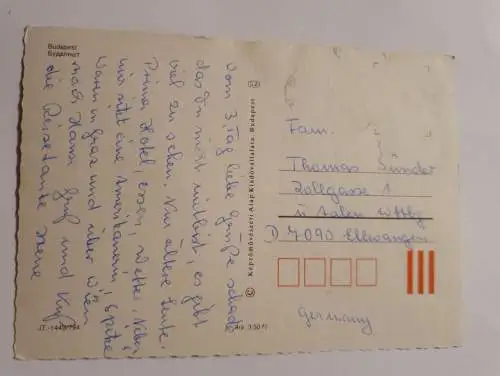 Budapest
Будапешт
vom 3. Tag liebe Grüße schade
das Du nicht mitbist, es gibt
viel zu sehen. Nur ältere Leute.
Prima Hotel, essen, Wetter. Neben
mir sitzt eine Amerikanerin, Spitze
waren in Graz und über Wien
nach Hause Gruß und Kuß
die Reisetante
© Képzőművészeti Alap Kiadóvállalata, Budapest ©
Fam.
Thomas
Zollgasse 1
ü Aalen Wttbg
D 7090 Ellwangen
Germany
Ára: 3,50 Ft